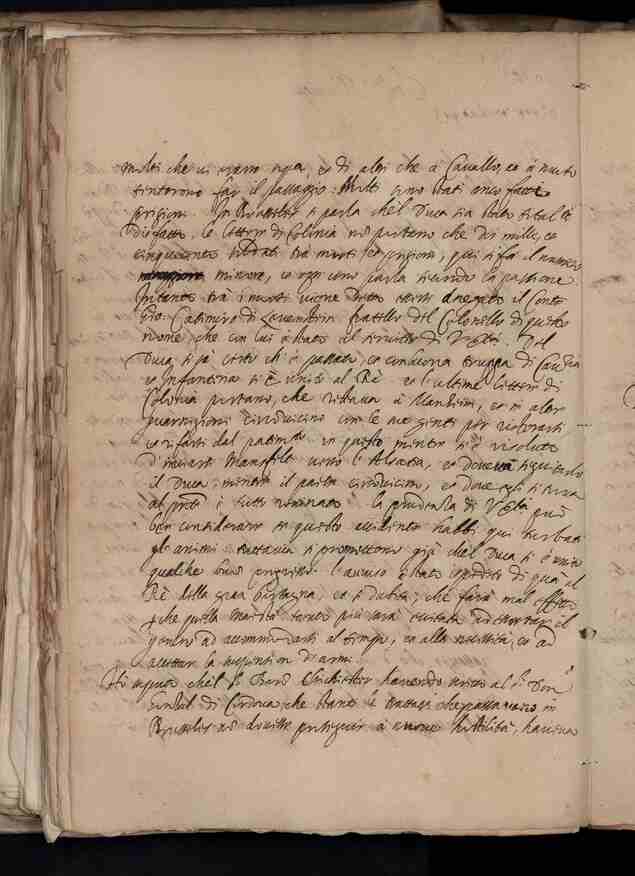 molti che vi erano sopra, et di altri che à Cavallo, et à nuoto
tentorono far il passaggio. Molti sono stati anco fatti
prigioni. In Brusseles si parla ch'el Duca sia stato total.te
disfatto. Le lettere di Colonia non portano che doi mille, et
cinquecento soldati tra morti, et prigioni, qui si fà il numero
minore, et ogn'uno parla secondo la passione.
Intanto trà i morti viene detto esser anegato il Conte
Gio: Casimiro di Levenstein fratello del Colonello di questo
nome, che con lui è stato al servitio di V. Ser.tà. Del
Duca si sà certo ch'è passato, et con buona truppa di Cavalleria
et Infanteria si è unito al Rè. et l'ultime lettere di
Colonia portano, che restava à Manheim, et in altre
guarnigioni circonvicine con le sue genti per ristorarsi
et rifarsi dal patim.to in questo mentre si è risoluto
d'inviarsi Mansfelt verso l'Alsatia, et doveva seguitarlo
il Duca; mentre il paese circonvicino, et dove essi si trova
al pnte è tutto rovinato. La prudenza di V. Ser.tà può
ben considerare se questo accidente habbi qui turbati
gli animi: tuttavia si promettono già ch'el Duca si è unito
qualche buon progresso. L'aviso è stato espedito di quà al
Rè della gran Bertagna, et si dubita, che farà mal effetto
et che quella Maestà tanto più sarà eccitata ad essortar il
genero ad accommodarsi al tempo, et alla necessità, et ad
accettar la suspension d'armi.
Hò inteso ch'el S.r Baron Chichester havendo scritto al S.r Don
Consalvo di Cordova, che stante le trattationi che passavano in
Brusseles non dovesse proseguir à nuove hostilità, haveva